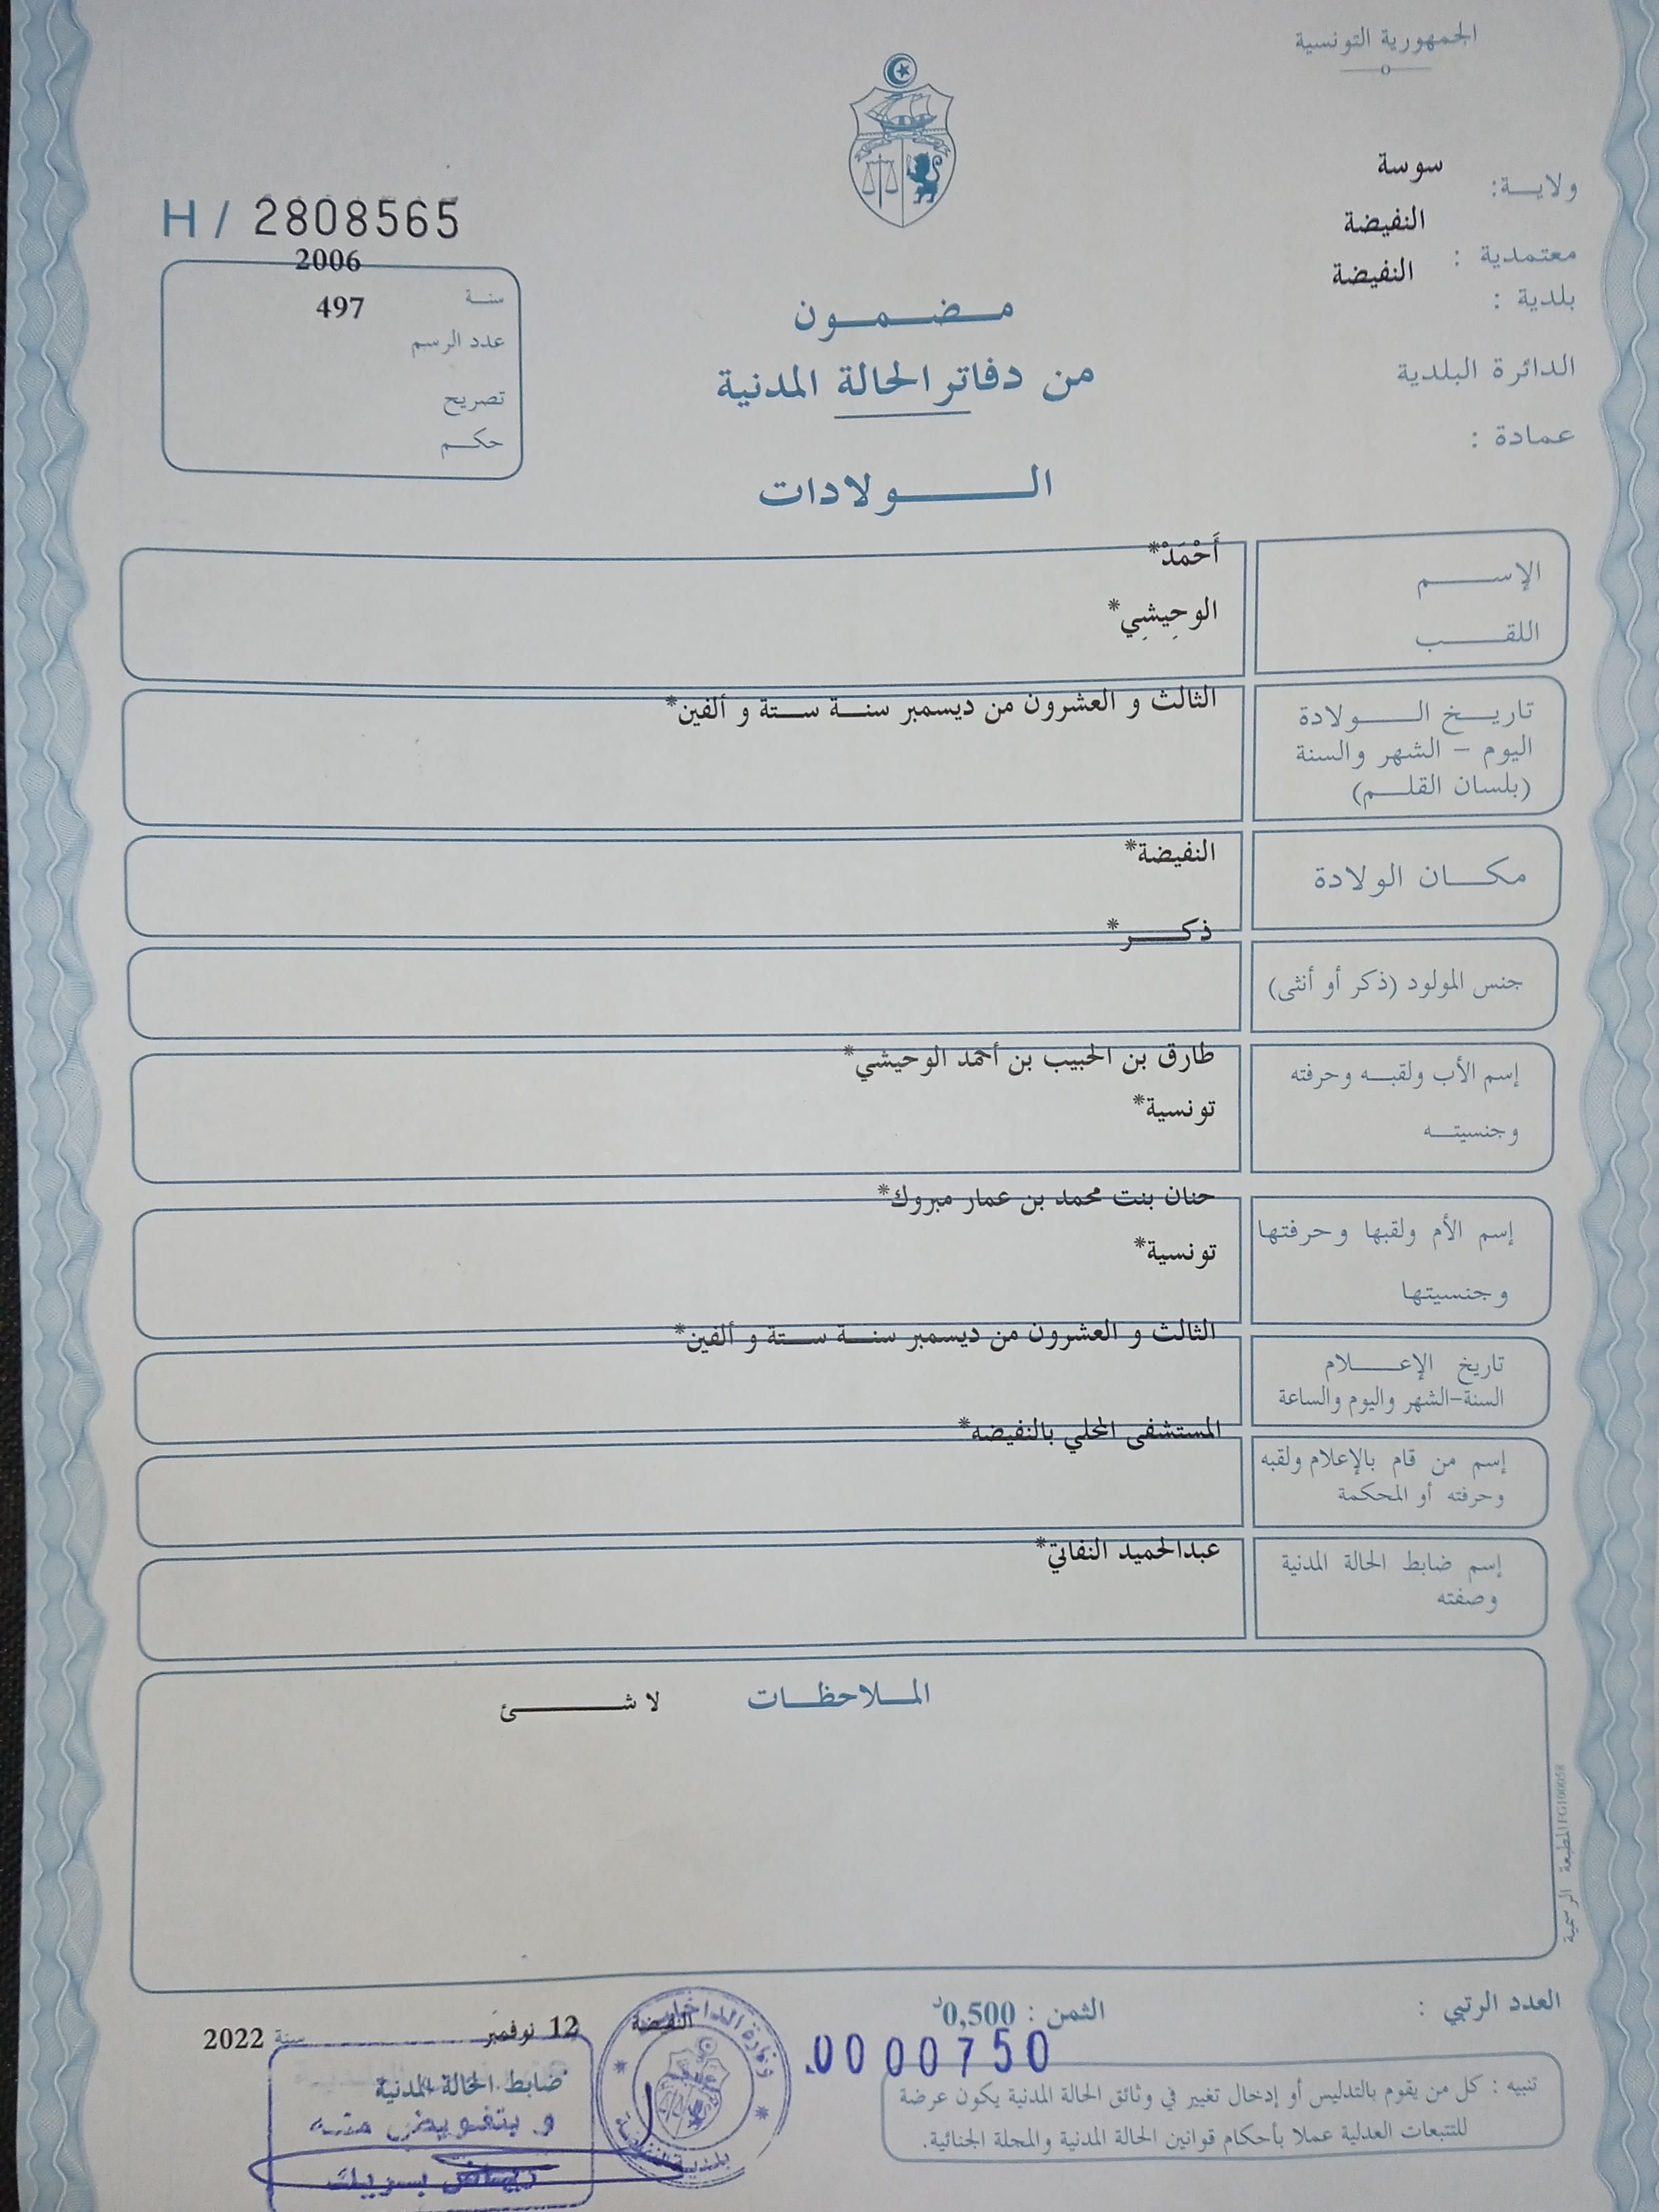 الجمهورية التونسية
ولايـــة: سوسة
معتمدية : النفيضة
بلدية : النفيضة
الدائرة البلدية
عمادة :
H / 2808565
2006
سنة
497
عدد الرسم
تصريح
حكم
مضمون
من دفاتر الحالة المدنية
الولادات
الإسم
أَحْمَدْ*
اللقب
الوحِيشِي*
تاريخ الولادة
اليوم – الشهر والسنة
(بلسان القلم)
الثالث و العشرون من ديسمبر سنة ستة و ألفين*
مكان الولادة
النفيضة*
جنس المولود (ذكر أو أنثى)
ذكر*
إسم الأب ولقبه وحرفته
طارق بن الحبيب بن أحمد الوحيشي*
وجنسيته
تونسية*
إسم الأم ولقبها وحرفتها
حنان بنت محمد بن عمار مبروك*
وجنسيتها
تونسية*
تاريخ الإعلام
السنة-الشهر واليوم والساعة
الثالث و العشرون من ديسمبر سنة ستة و ألفين*
إسم من قام بالإعلام ولقبه
وحرفته أو المحكمة
المستشفى المحلي بالنفيضه*
إسم ضابط الحالة المدنية
وصفته
عبدالحميد النفاتي*
الملاحظات
لا شئ
المطبعة الرسمية
العدد الرتبي :
الثمن : 0,500د
0000750
النفيضة
12 نوفمبر سنة 2022
وزارة الداخلية
ضابط الحالة المدنية
و بتفويض منه
تنبيه : كل من يقوم بالتدليس أو إدخال تغيير في وثائق الحالة المدنية يكون عرضة
للتتبعات العدلية عملا بأحكام قوانين الحالة المدنية والمجلة الجنائية.